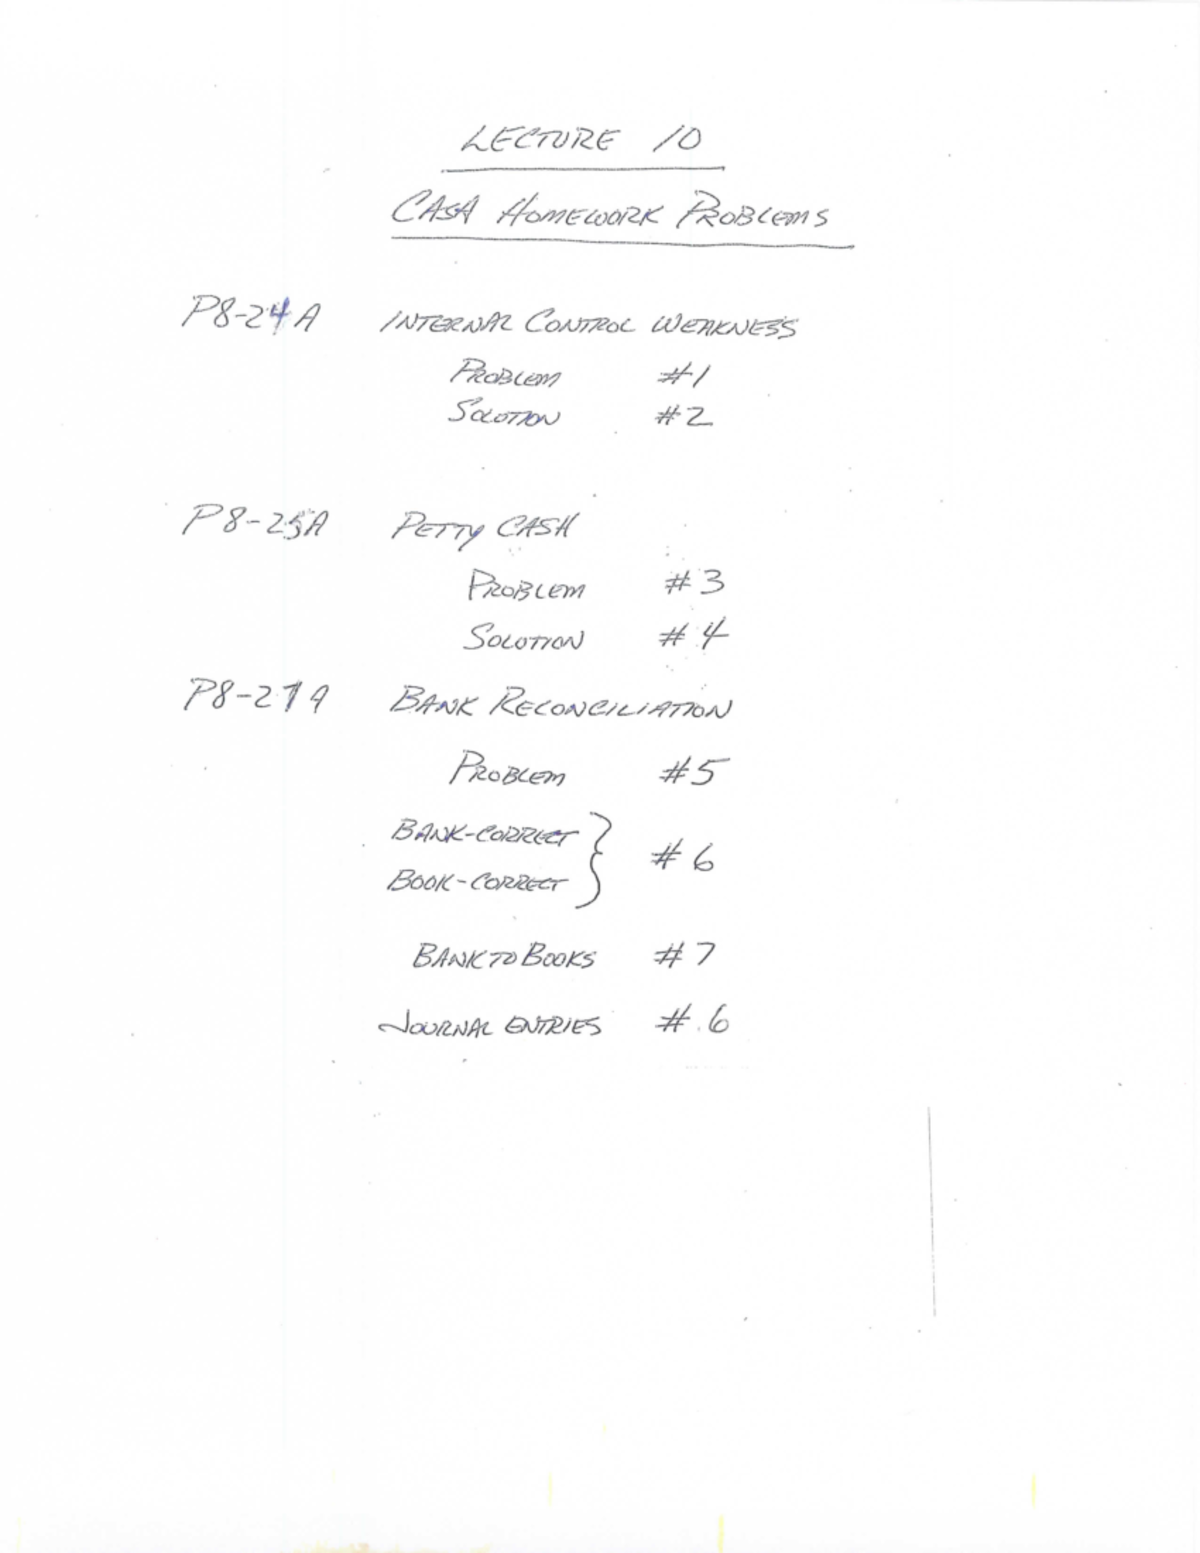 LECTURE 10
CASH HOMEWORK PROBLEMS
P8-24A INTERNAL CONTROL WEAKNESS
PROBLEM #1
SOLUTION #2
P8-25A PETTY CASH
PROBLEM #3
SOLUTION #4
P8-27A BANK RECONCILIATION
PROBLEM #5
BANK-CORRECT
BOOK-CORRECT } #6
BANK TO BOOKS #7
JOURNAL ENTRIES #6